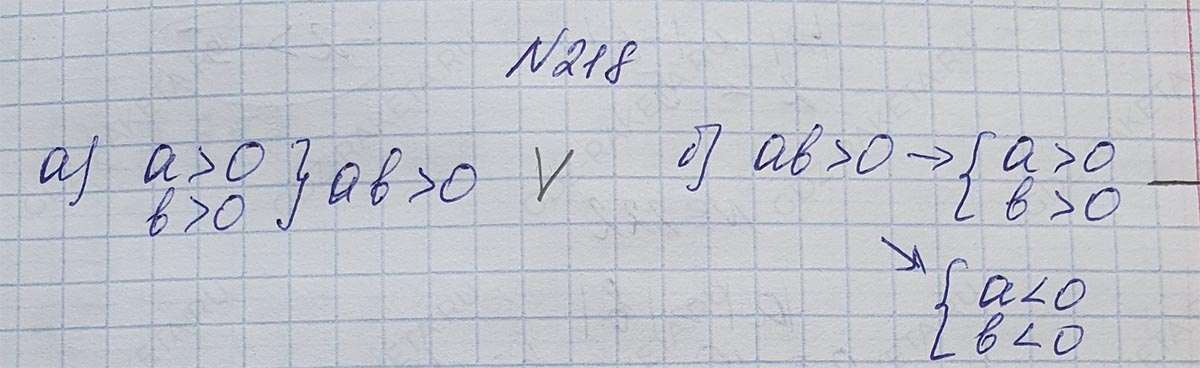 N218
а) a>0 } ab>0 V б) ab>0 → { a>0 —
b>0 b>0
↘ { a<0
b<0